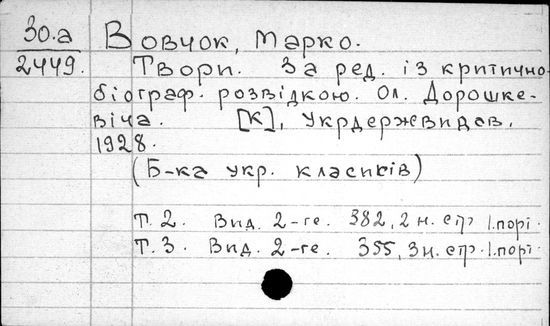 30.а Вовчок, Марко.
2449. Твори. За ред. із критично-
біограф. розвідкою. Ол. Дорошке-
віча. [К], Укрдержвидав,
1928.
(Б-ка укр. класиків)
Т. 2. Вид. 2-ге. 382, 2 н. стр 1.порт.
Т. 3. Вид. 2-ге. 355, 3 н. стр. 1.порт.